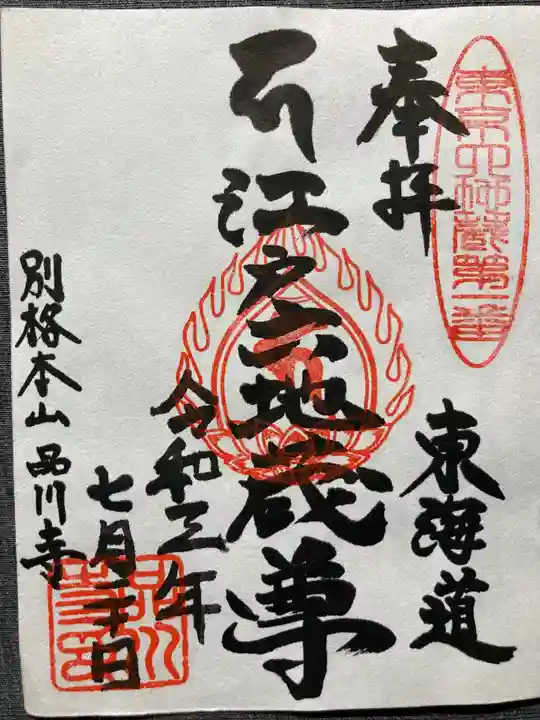 東京六地蔵第一番
奉拝
東海道
江戸六地蔵尊
令和三年
七月二十日
別格本山 品川寺
品川寺印